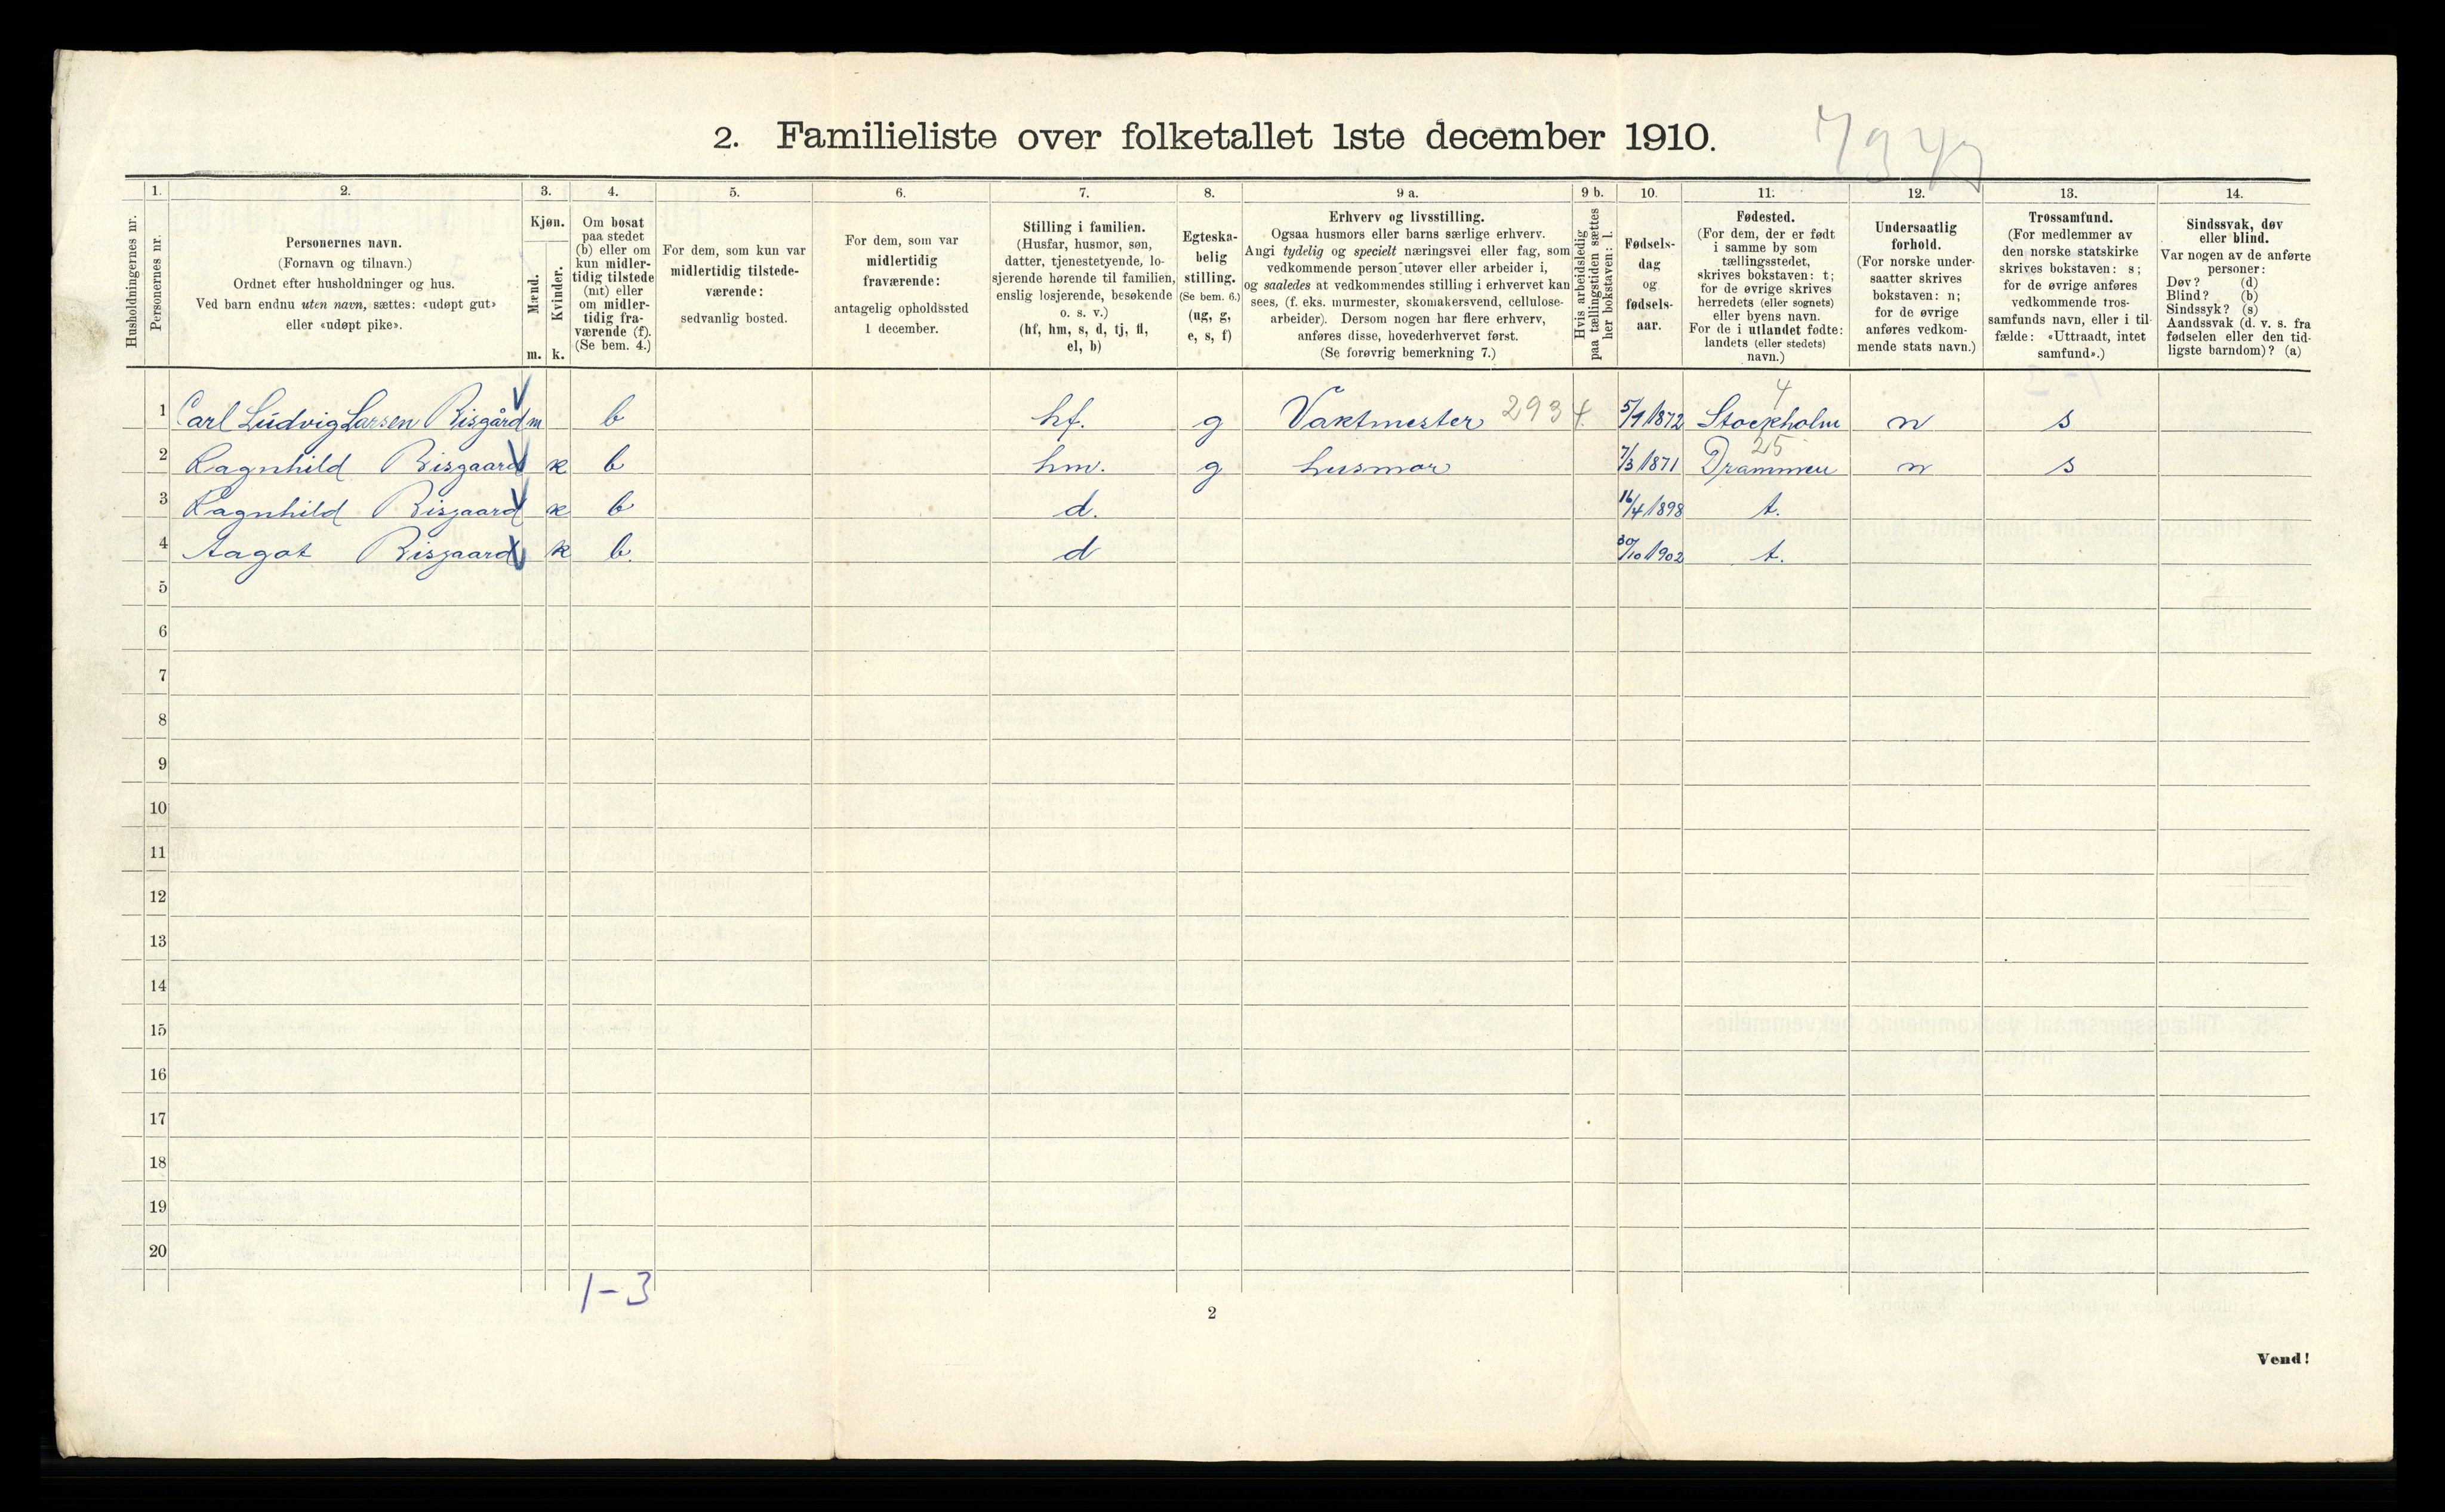 2. Familieliste over folketallet 1ste december 1910.
Husholdningernes nr.
1.
Personernes nr.
2.
Personernes navn.
(Fornavn og tilnavn.)
Ordnet efter husholdninger og hus.
Ved barn endnu uten navn, sættes: «udøpt gut»
eller «udøpt pike».
3.
Kjøn.
Mænd.
Kvinder.
m.
k.
4.
Om bosat
paa stedet
(b) eller om
kun midler-
tidig tilstede
(mt) eller
om midler-
tidig fra-
værende (f).
(Se bem. 4.)
5.
For dem, som kun var
midlertidig tilstede-
værende:
sedvanlig bosted.
6.
For dem, som var
midlertidig
fraværende:
antagelig opholdssted
1 december.
7.
Stilling i familien.
(Husfar, husmor, søn,
datter, tjenestetyende, lo-
sjerende hørende til familien,
enslig losjerende, besøkende
o. s. v.)
(hf, hm, s, d, tj, fl,
el, b)
8.
Egteska-
belig
stilling.
(Se bem. 6.)
(ug, g,
e, s, f)
9 a.
Erhverv og livsstilling.
Ogsaa husmors eller barns særlige erhverv.
Angi tydelig og specielt næringsvei eller fag, som
vedkommende person utøver eller arbeider i,
og saaledes at vedkommendes stilling i erhvervet kan
sees, (f. eks. murmester, skomakersvend, cellulose-
arbeider). Dersom nogen har flere erhverv,
anføres disse, hovederhvervet først.
(Se forøvrig bemerkning 7.)
9 b.
Hvis arbeidsledig
paa tællingstiden sættes
her bokstaven: l.
10.
Fødsels-
dag
og
fødsels-
aar.
11.
Fødested.
(For dem, der er født
i samme by som
tællingsstedet,
skrives bokstaven: t;
for de øvrige skrives
herredets (eller sognets)
eller byens navn.
For de i utlandet fødte:
landets (eller stedets)
navn.)
12.
Undersaatlig
forhold.
(For norske under-
saatter skrives
bokstaven: n;
for de øvrige
anføres vedkom-
mende stats navn.)
13.
Trossamfund.
(For medlemmer av
den norske statskirke
skrives bokstaven: s;
for de øvrige anføres
vedkommende tros-
samfunds navn, eller i til-
fælde: «Uttraadt, intet
samfund».)
14.
Sindssvak, døv
eller blind.
Var nogen av de anførte
personer:
Døv? (d)
Blind? (b)
Sindssyk? (s)
Aandssvak (d. v. s. fra
fødselen eller den tid-
ligste barndom)? (a)
4
1 Carl Ludvig Larsen Risgård m b hf. g Vaktmester 293 5/9 1872 Stockholm n s
25
2 Ragnhild Risgaard k b hm. g husmor 7/3 1871 Drammen n s
3 Ragnhild Risgaard k b d. 16/4 1898 t.
4 Aagot Risgaard k b. d 30/10 1902 t.
5
6
7
8
9
10
11
12
13
14
15
16
17
18
19
20
1-3
2
Vend!